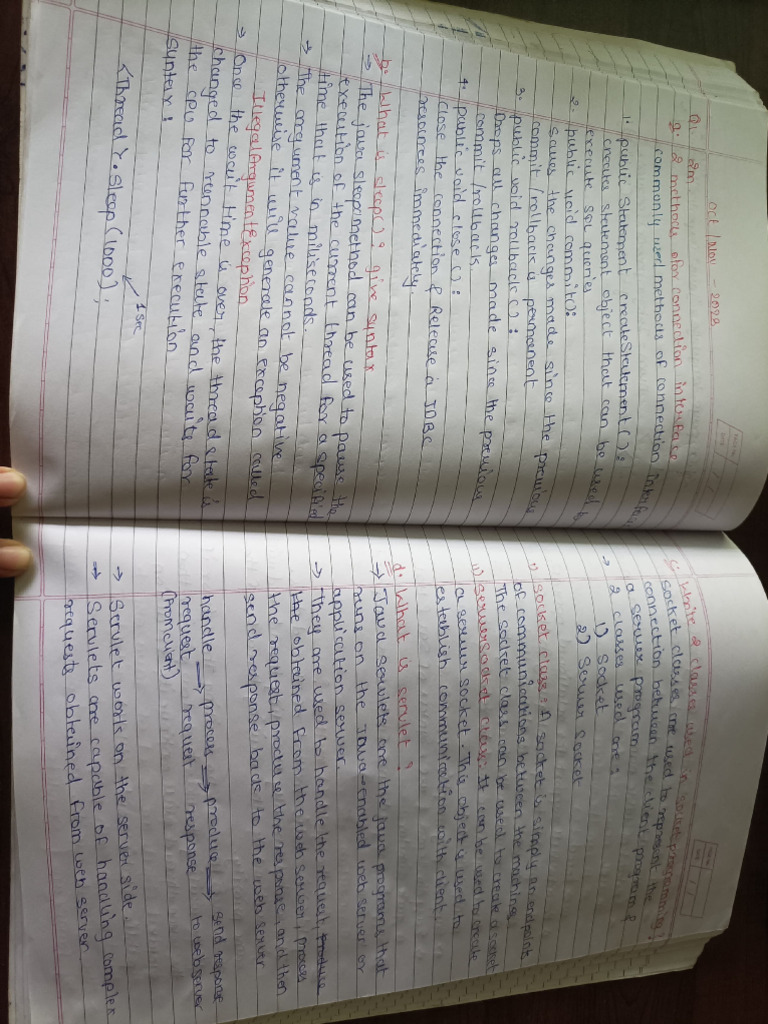 Oct / Nov - 2023
Q1. 2m
a. 2 methods of connection interface
commonly used methods of connection interface
1. public Statement createStatement():
creates statement object that can be used to
execute SQL queries
2. public void commit():
saves the changes made since the previous
commit / rollback is permanent
3. public void rollback():
Drops all changes made since the previous
commit / rollback
4. public void close():
close the connection & Release a JDBC
resources immediately.
b. What is sleep()? give syntax
→ The java sleep method can be used to pause the
execution of the current thread for a specified
time that is in miliseconds.
→ The argument value cannot be negative
otherwise it will generate an exception called
IllegalArgumentException
→ Once the wait time is over, the thread state is
changed to runnable state and waits for
the cpu for further execution
Syntax :
1 sec
<Thread>.sleep(1000);
c. Write 2 classes used in socket programming?
socket classes are used to represent the
connection between the client program &
a server program
→ 2 classes used are :
1) Socket
2) Server Socket
i) socket class : A socket is simply an endpoint
of communications between the machines
The socket class can be used to create a socket
ii) serverSocket class : It can be used to create
a server socket. This object is used to
establish communication with client.
d. What is servlet?
→ Java servlets are the java programs that
runs on the Java-enabled web server or
application server
→ They are used to handle the request, produce
the obtained from the web server, process
the request, produce the response, and then
send response back to the web server
handle → process → produce → send response
request request response to webserver
(from client)
→ Servlet works on the server side.
→ Servlets are capable of handling complex
requests obtained from web server